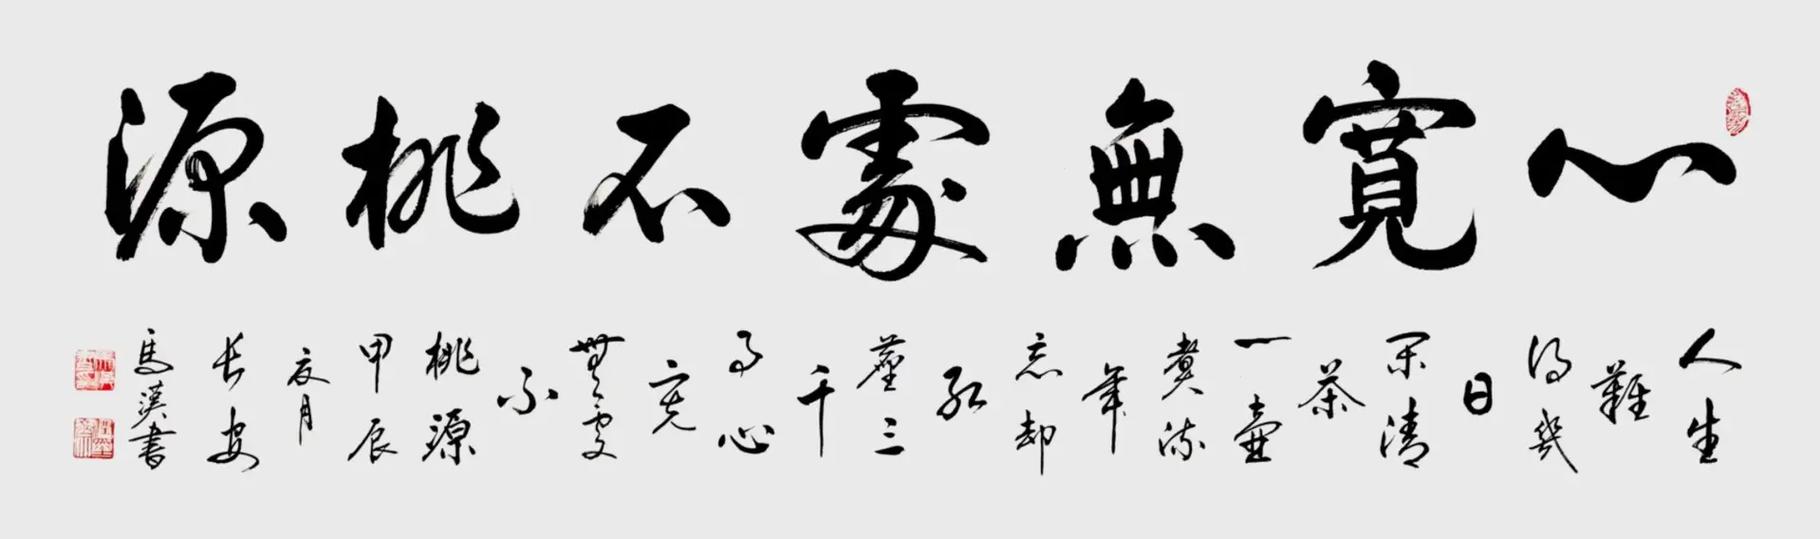 心寬無處不桃源
人生
難
得幾
日
閑清
茶
一壺
煮流
年
忘却
紅
塵三
千
事心
寬
無處
不
桃源
甲辰
夏月
长安
馬漢書